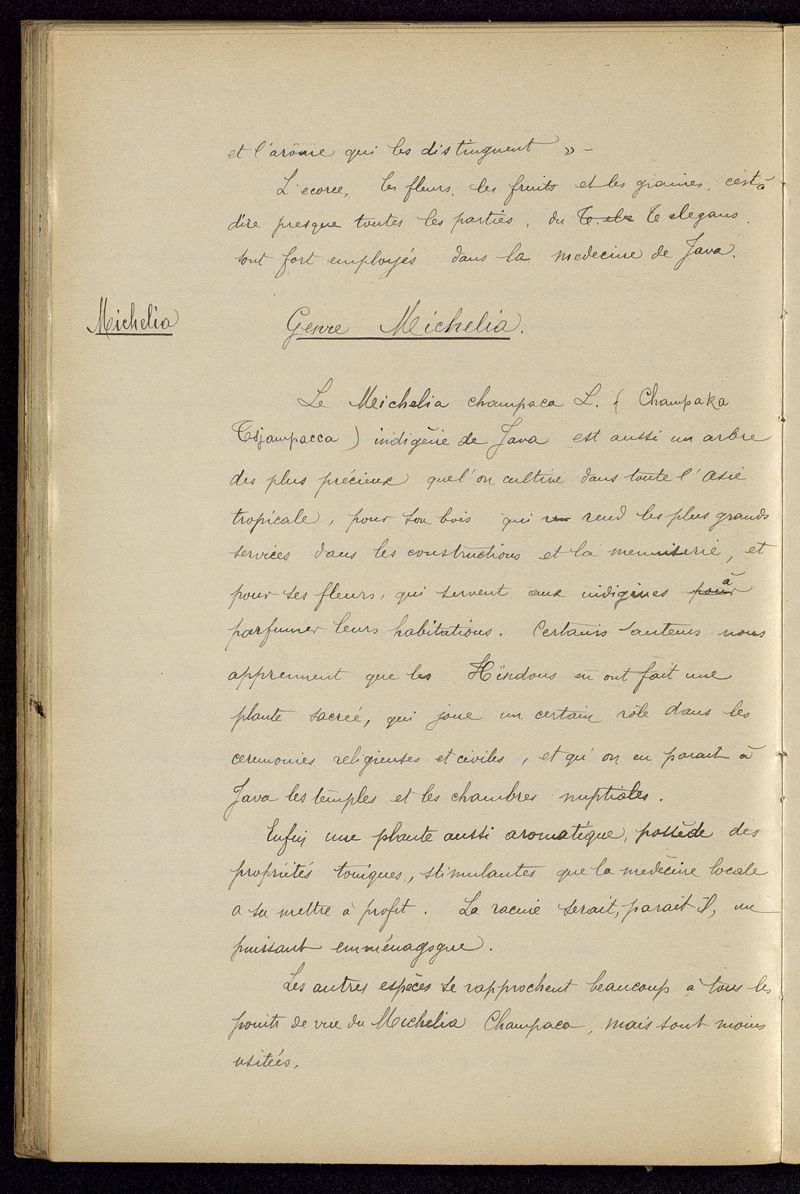 et l'arôme qui les distinguent » -
L'ecorce, les fleurs, les fruits et les graines, c'est à
dire presque toutes les parties, du T. ele T elegans.
sont fort employés dans la medecine de Java.
Michelia
Genre Michelia.
Le Michelia champaca L. ( Champaka
Tsjampacca ) indigène de Java est aussi un arbre
des plus précieux que l'on cultive dans toute l'Asie
tropicale, pour son bois qui rend les plus grands
services dans les constructions et la menuiserie, et
pour ses fleurs, qui servent aux indigènes pour à
parfumer leurs habitations. Certains auteurs nous
apprennent que les Hindous en ont fait une
plante sacrée, qui joue un certain rôle dans les
ceremonies religieuses et civiles, et qu'on en parait à
Java les temples et les chambres nuptiales.
Enfin une plante aussi aromatique, possède des
propriétés toniques, stimulantes que la medecine locale
a su mettre à profit. La racine serait, parait il, un
puissant emménagogue.
Les autres espèces se rapprochent beaucoup à tous les
points de vue du Michelia Champaca, mais sont moins
usitées.